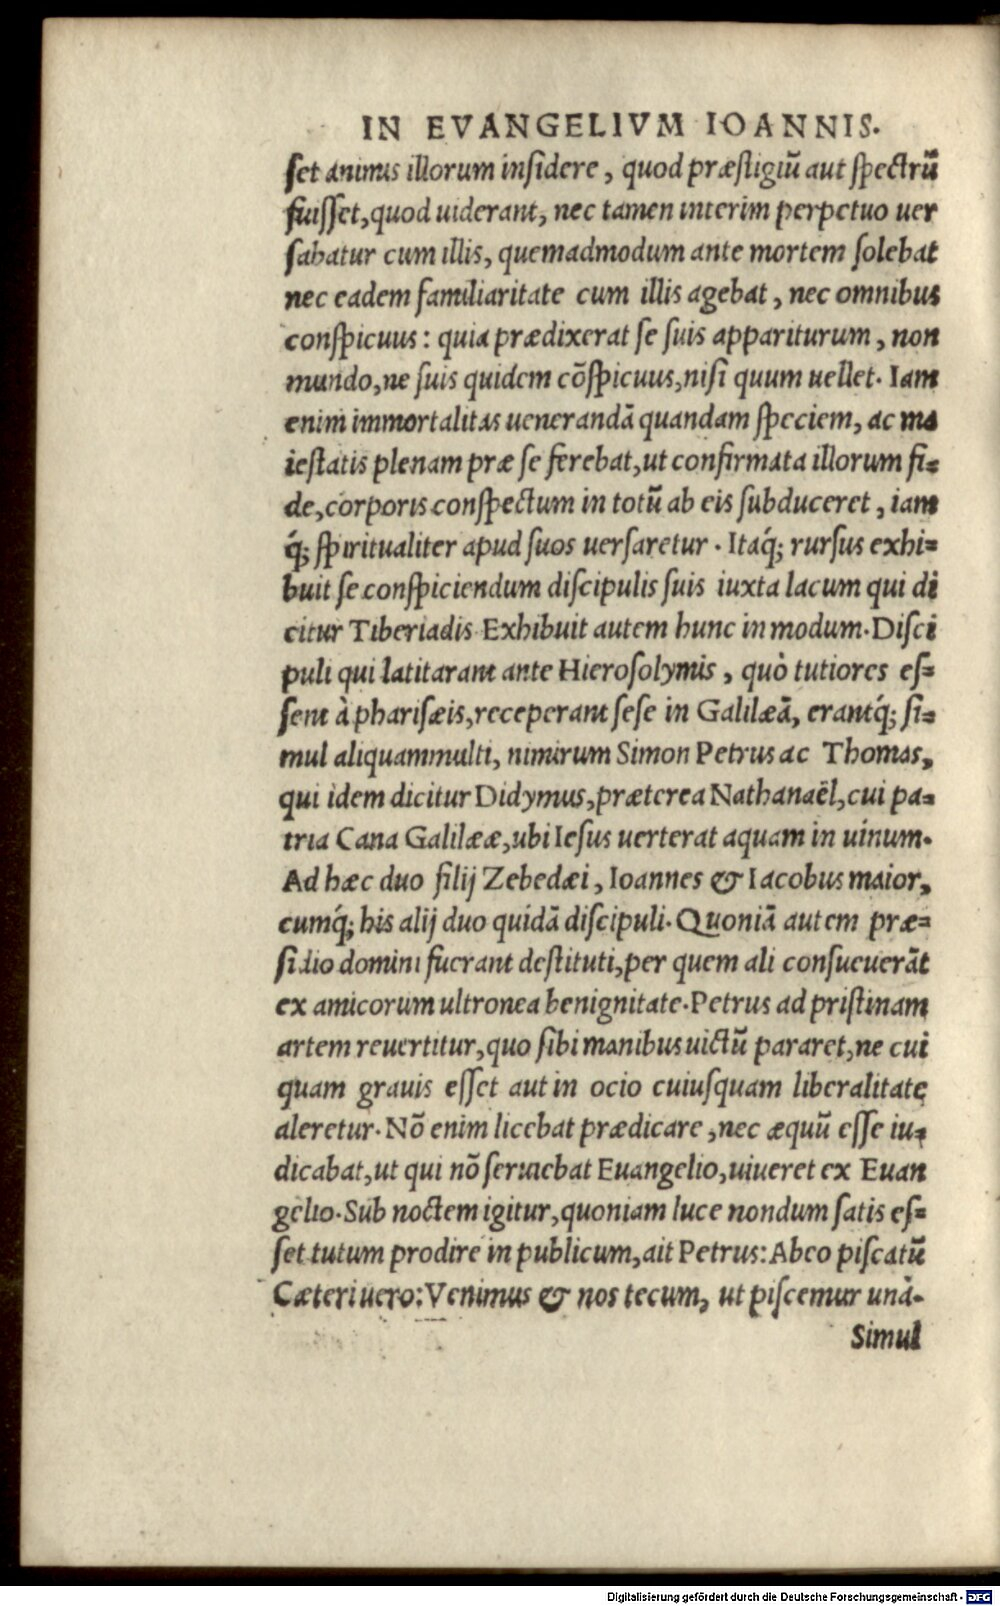 IN EVANGELIVM IOANNIS.
ſet animis illorum inſidere, quod præſtigiũ aut ſpectrũ
fuiſſet, quod uiderant, nec tamen interim perpetuo uer
ſabatur cum illis, quemadmodum ante mortem ſolebat
nec eadem familiaritate cum illis agebat, nec omnibus
conſpicuus: quia prædixerat ſe ſuis appariturum, non
mundo, ne ſuis quidem cõſpicuus, niſi quum uellet. Iam
enim immortalitas uenerandã quandam ſpeciem, ac ma
ieſtatis plenam præ ſe ferebat, ut confirmata illorum fi=
de, corporis conſpectum in totũ ab eis ſubduceret, iam
q́; ſpiritualiter apud ſuos uerſaretur. Itaq́; rurſus exhi=
buit ſe conſpiciendum diſcipulis ſuis iuxta lacum qui di
citur Tiberiadis Exhibuit autem hunc in modum. Diſci
puli qui latitarant ante Hieroſolymis, quò tutiores eſ=
ſent à phariſæis, receperant ſeſe in Galilæã, erantq́; ſi=
mul aliquammulti, nimirum Simon Petrus ac Thomas,
qui idem dicitur Didymus, præterea Nathanaël, cui pa=
tria Cana Galilææ, ubi Ieſus uerterat aquam in uinum.
Ad hæc duo filij Zebedæi, Ioannes & Iacobus maior,
cumq́; his alij duo quidã diſcipuli. Quoniã autem præ=
ſidio domini fuerant deſtituti, per quem ali conſueuerãt
ex amicorum ultronea benignitate. Petrus ad priſtinam
artem reuertitur, quo ſibi manibus uictũ pararet, ne cui
quam grauis eſſet aut in ocio cuiuſquam liberalitate
aleretur. Nõ enim licebat prædicare, nec æquũ eſſe iu=
dicabat, ut qui nõ ſeruiebat Euangelio, uiueret ex Euan
gelio. Sub noctem igitur, quoniam luce nondum ſatis eſ=
ſet tutum prodire in publicum, ait Petrus: Abeo piſcatũ
Cæteri uero: Venimus & nos tecum, ut piſcemur unà.
Simul
Digitalisierung gefördert durch die Deutsche Forschungsgemeinschaft - DFG